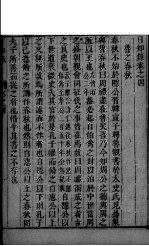 日知錄卷之四
魯之春秋
春秋不始於隱公晉韓宣子聘魯觀書於太史氏見易象
與魯春秋曰周禮盡在魯矣吾乃今知周公之德與周之
所以王也蓋必起自伯禽之封以洎於中世當周
之盛朝覲會同征伐之事皆在焉故曰周禮而成之者古
之良史也自隱公以
下世道衰微史失其官於是孔子懼而修之自惠公以上
之文無所改焉所謂述而不作者也自隱公以下則孔子
以己意修之所謂作春秋也然則自惠公以上之春秋固
夫子所善而從之者也惜乎其書之不存也